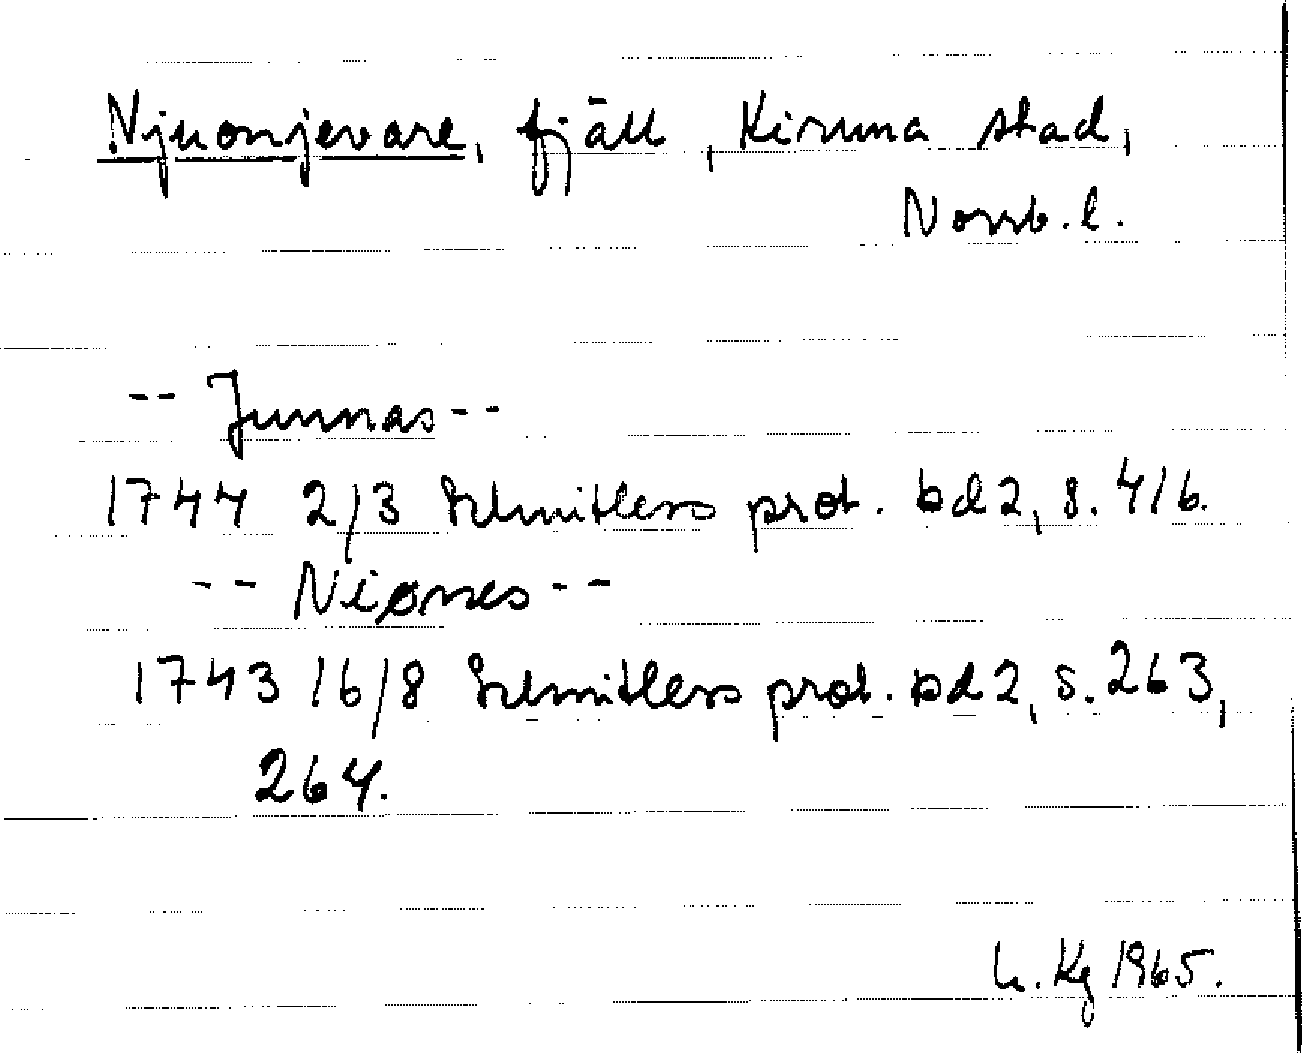 Njuonjevare, fjäll, Kiruna stad,
Norrb. l.
-- Junnas --
1744 2/3 Schnitlers prot. bd 2, s. 416.
-- Niønnes --
1743 16/8 Schnitlers prot. bd 2, s. 263,
264.
h. Kg 1965.